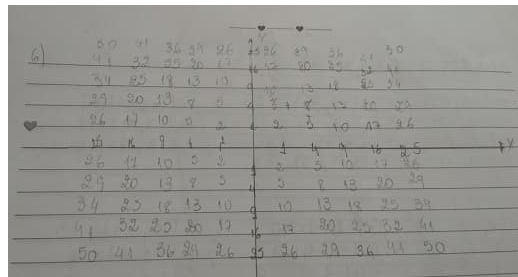 y
50 41 36 29 26 25 26 29 36 41 50
6) 41 32 25 20 17 16 17 20 25 32 41
34 25 18 13 10 13 18 25 34
29 20 13 8 5 5 8 13 20 29
26 17 10 5 2 2 5 10 17 26
25 16 9 4 1 1 4 9 16 25 x
26 17 10 5 2 2 5 10 17 26
29 20 13 8 5 5 8 13 20 29
34 25 18 13 10 9 10 13 18 25 34
41 32 25 20 17 16 17 20 25 32 41
50 41 36 29 26 25 26 29 36 41 50